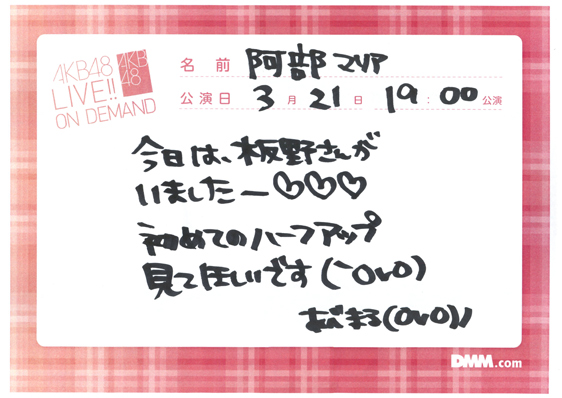 AKB48
LIVE!!
ON DEMAND
AKB
48
名前 阿部マリア
公演日 3月21日 19:00公演
今日は、板野さんが
いましたー♡♡♡
初めてのハーフアップ
見てほしいです(^OvO)
あびまる(OvO)ノ
DMM.com